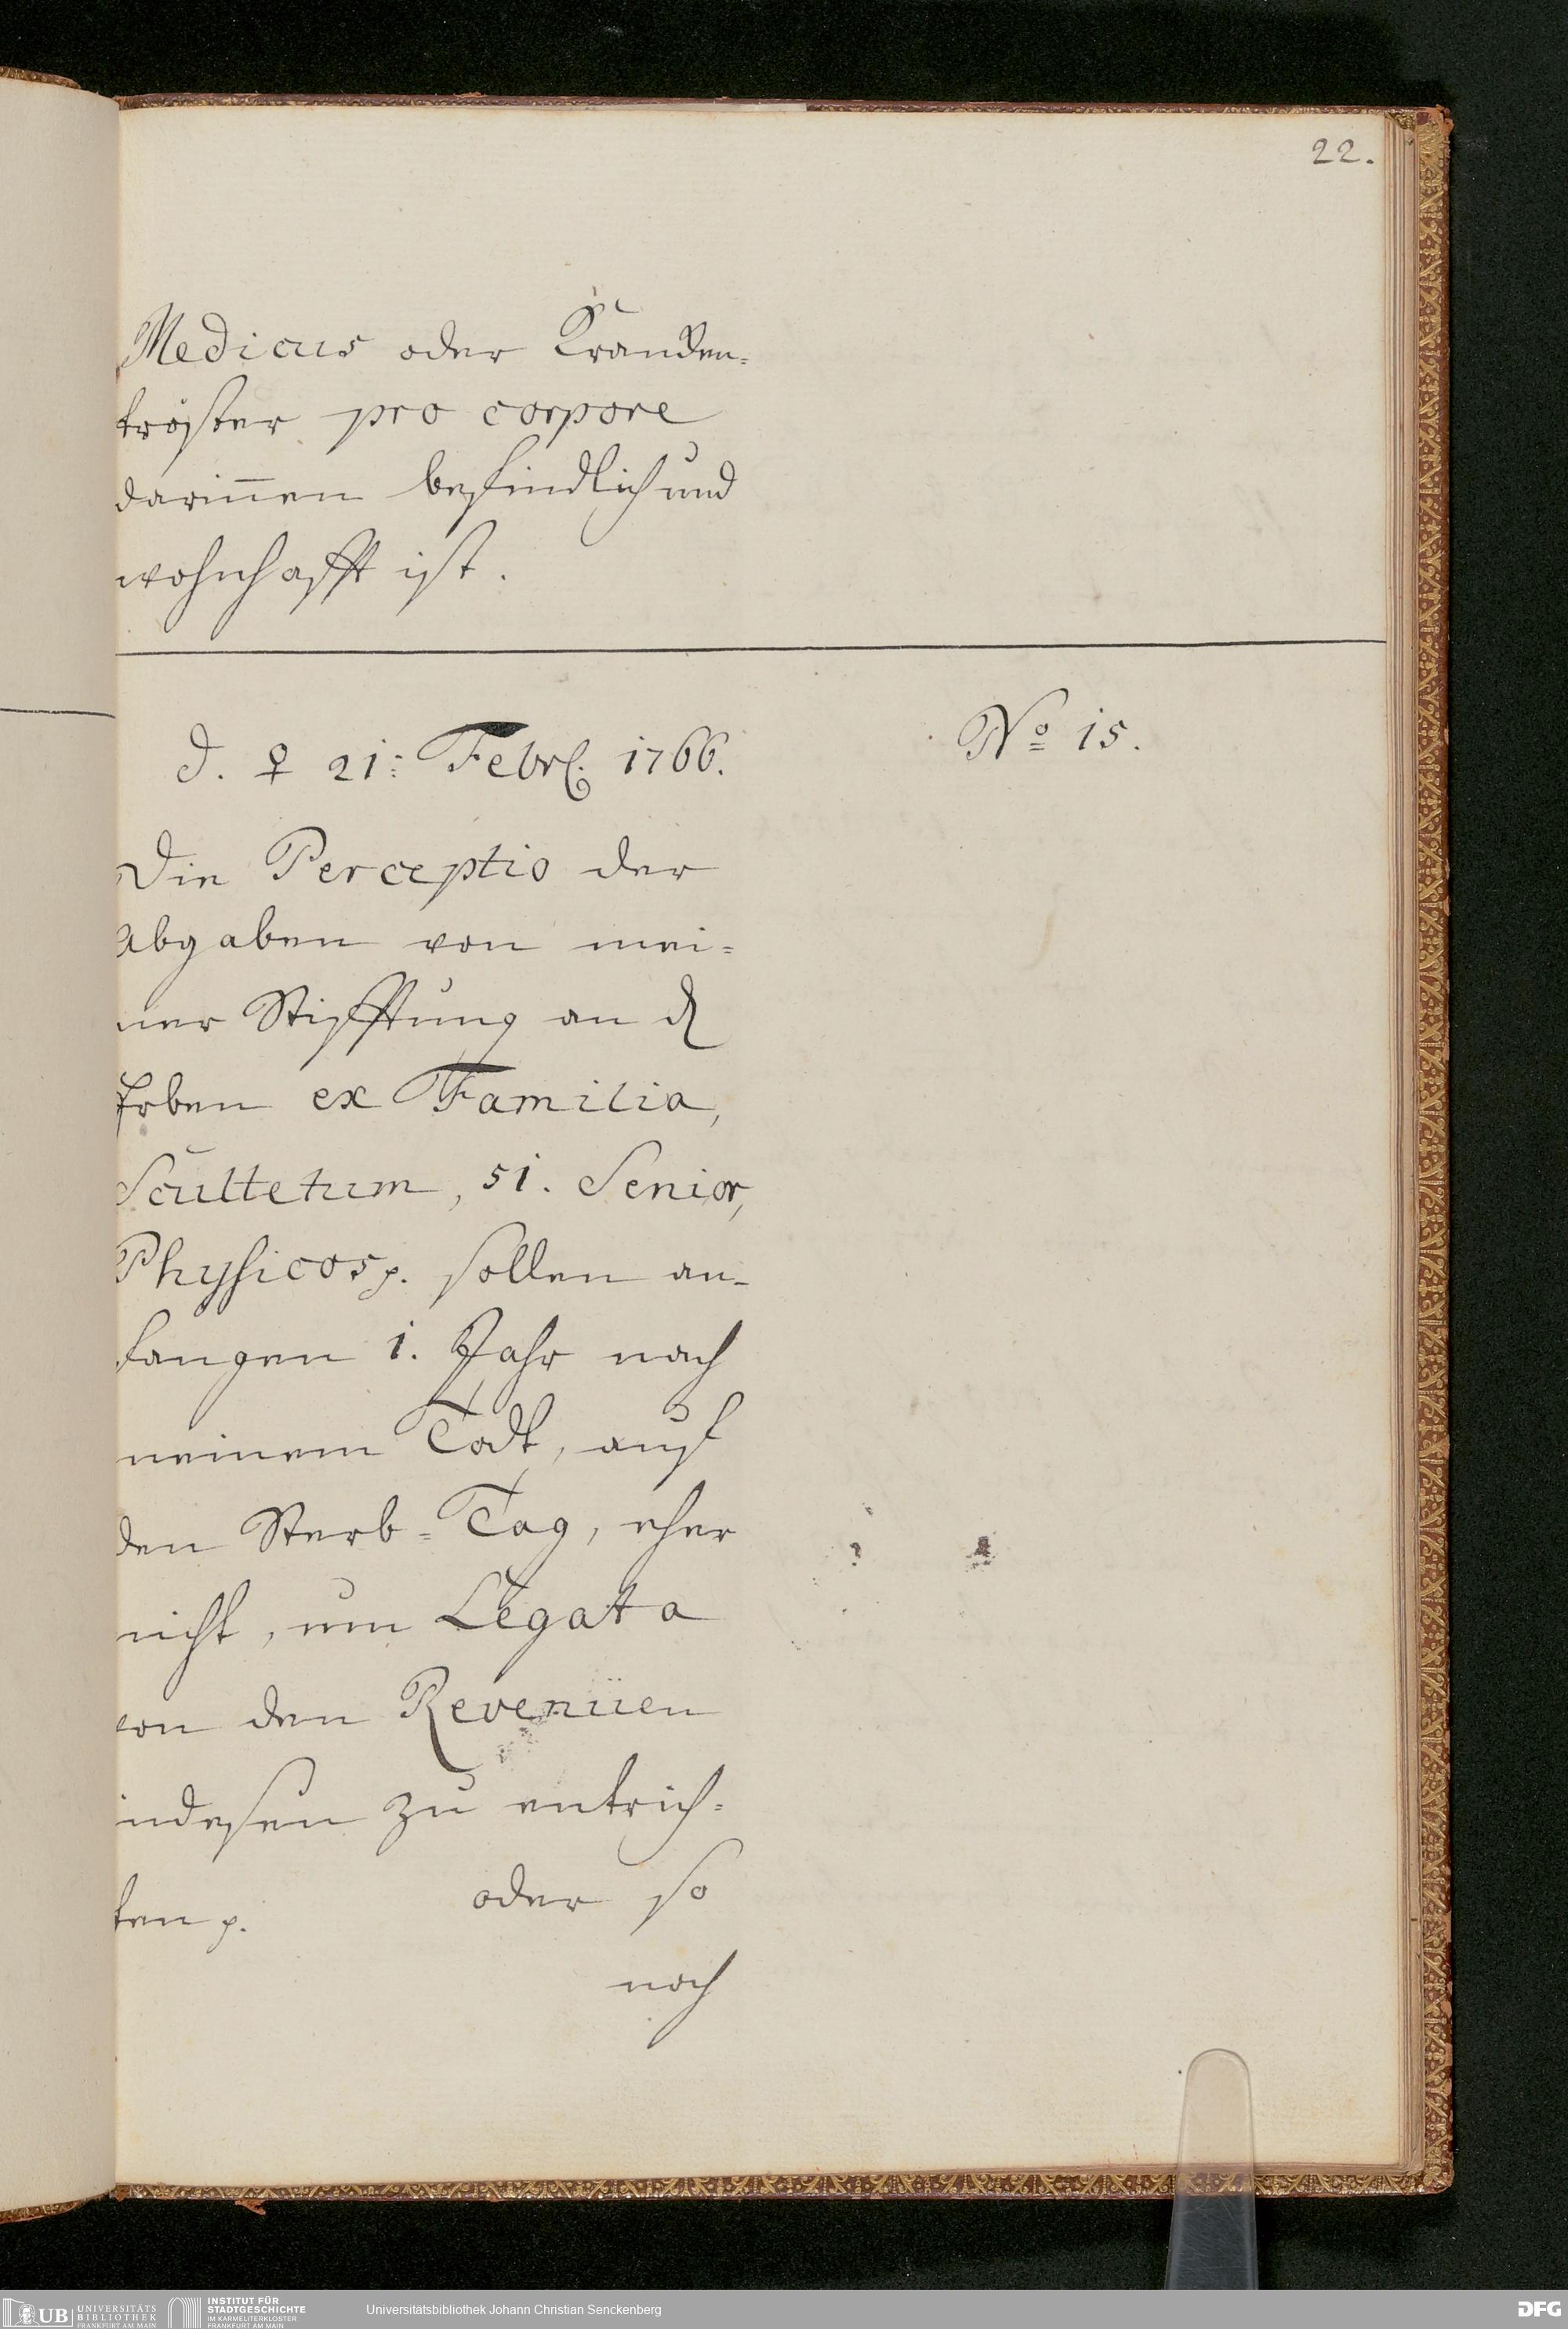 22.
Medicus oder Krancken-
tröster pro corpore
darinnen befindlich und
wohnhafft ist.
No 15.
d. ♀ 21: Febr. 1766.
Die Perceptio der
Abgaben von mei=
ner Stifftung an d
Erben ex Familia,
Scultetum, 51. Senior,
Physicos p. sollen an-
fangen 1. Jahr nach
meinem Todt, auf
den Sterb=Tag, eher
nicht, um Legata
von den Revenüen
indesen zu entrich=
ten p. oder so
noch
UB UNIVERSITÄTS
BIBLIOTHEK
FRANKFURT AM MAIN
INSTITUT FÜR
STADTGESCHICHTE
IM KARMELITERKLOSTER
FRANKFURT AM MAIN
Universitätsbibliothek Johann Christian Senckenberg
DFG